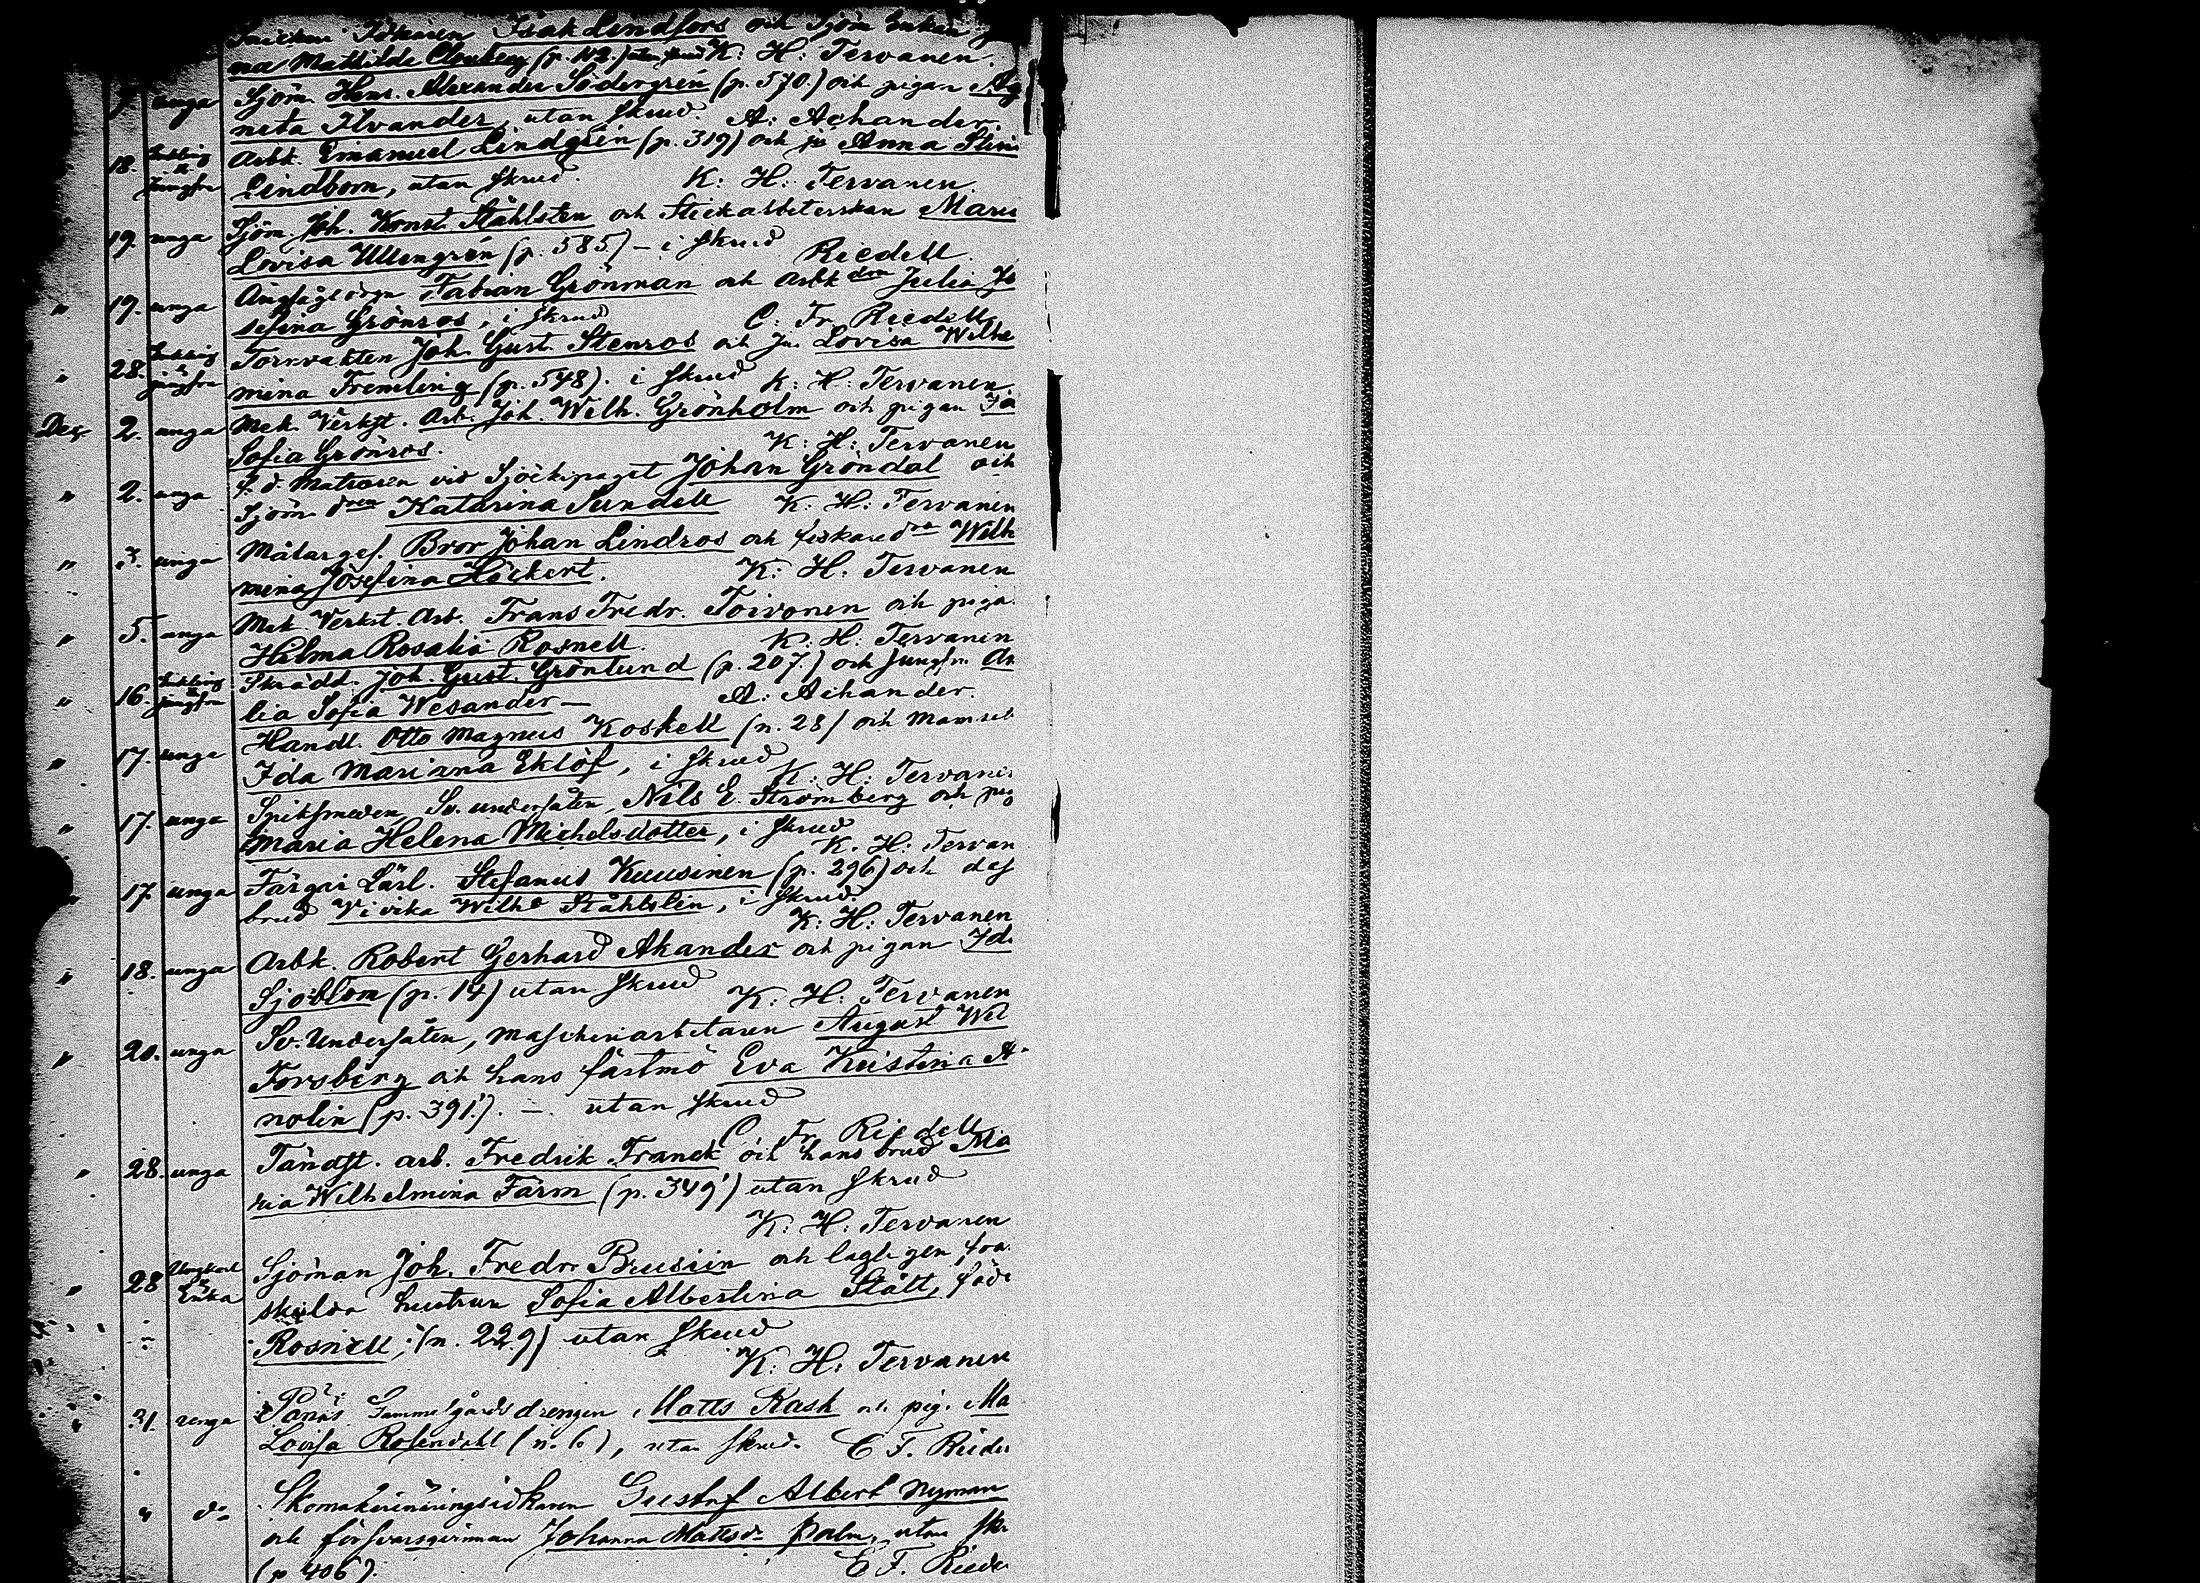 Idkaren Isak Lindfors och Sjöm Enkan
na Mathilda (p. 112.) utan skrud K: H: Tervanen.
7. unga Sjöm. Henr. Alexander Södergrén (p. 570.) och pigan Ag
neta Ilvander, utan skrud. A: Achander.
18. Enkling & Jungfru Arbk. Emanuel Lindgrén (p. 319) och ju Anna Stin
Lindbom, utan skrud. K: H: Tervanen.
19. unga Sjöm. Joh. Konst. Ståhlsten och Stickarbeterskan Maria
Lovisa Ullengrén (p. 585) – i skrud Riedell.
" 19. unga Fabian Grönman och Arbk dra Julia Jo
sefina Grönros, i skrud C. Fr. Riedell
" 28. Enkling & jungfru Tornvakten Joh. Gust. Stenros och Ju. Lovisa Wilhe
mina Fremling (p. 548). i skrud K: H: Tervanen.
Dec. 2. unga Mek. Verkst. Arb. Joh. Wilh. Grönholm och pigan Ida
Sofia Grönros. K: H: Tervanen
" 2. unga f. d. Matrosen vid Sjöekipaget Johan Gröndal och
Sjöm dren Katarina Sundell K: H: Tervanen
" 3. unga Målarges. Bror Johan Lindros och fiskaredra Wilh
mina Josefina Höckert. K: H: Tervanen
" 5. unga Mek. Verkst. Arb. Frans Fredr. Toivonen och piga
Hilma Rosalia Rosnell. K: H: Tervanen
" 16. Enkling & jungfru Skrädd. Joh. Gust. Grönlund (p. 207.) och Jungfru Am
lia Sofia Wesander – A: Achander.
" 17. unga Handl. Otto Magnus Koskell (p. 28) och Mamsel
Ida Mariana Eklöf, i skrud K: H: Tervanen
" 17. unga Spiksmeden, Sv. undersåten, Nils E. Strömberg och pig
Maria Helena Michelsdotter, i skrud K. H: Tervan
" 17. unga Färgar Lärl. Stefanus Kuusinen (p. 296) och dess
brud Vivika Wilhe Ståhlstén, i skrud. K: H: Tervanen
" 18. unga Arbk. Robert Gerhard Akander och pigan Ida
Sjöblom (p. 14) utan skrud K: H: Tervanen
" 20. unga Sv. Undersåten, maschinarbetaren August Wil
Forsberg och hans fästmö Eva Kristina A
nolin (p. 391.). – utan skrud
C Fr Riedell.
" 28. unga Tändst. arb. Fredrik Franck och hans brud Ma
ria Wilhelmina Färm (p. 349) utan skrud
K: H: Tervanen
" 28 Ungkarl & Enka Sjöman Joh. Fredr Brusiin och lagligen från
skilda hustrun Sofia Albertina Stått, född
Rosnell, (p. 229) utan skrud
K: H: Tervanen
" 31. unga Pänäs Gammelgårds drengen Matts Rask o. pig. Ma
Lovisa Rosendahl (n. 6), utan skrud. C F. Riede
" do Skomakerinäringsidkaren Gustaf Albert Nyman
och försvarsqvinnan Johanna Mattsdr Palm, utan skr
(p 406). C F. Riede